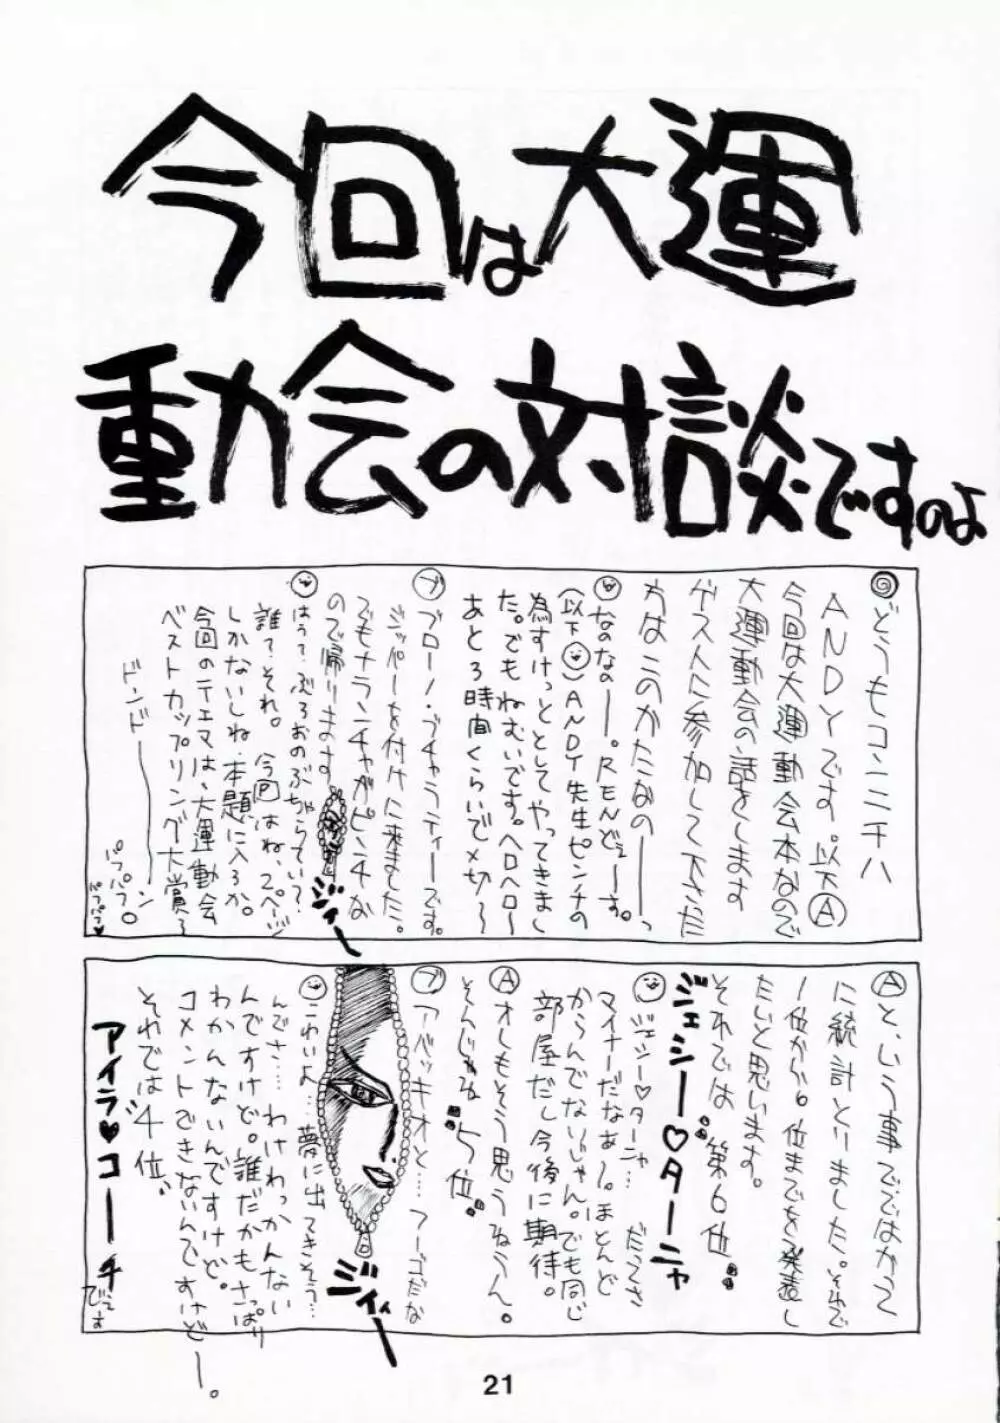 今回は大運
動会の対談ですのよ
◎どうもコンニチハ
ANDYです。以下Ⓐ
今回は大運動会本なので
大運動会の話をします
ゲストに参加して下さった
方はこのかたなのーーっ
なのなのーー。RENどぇーーす。
(以下 )ANDY先生ピンチの
為すけっととしてやってきまし
た。でもねむいです。ヘロヘロ〜
あと3時間くらいで〆切〜
ブ ブローノ・ブチャラティーです。
ジッパーを付けに来ました。
でもナランチャがピンチな
ので帰ります
ジィー
はうて、ぶろおのぶちゃらてい?
誰て、それ。今回はね、2ページ
しかないしね、本題に入ろか。
今回のテェマは、大運動会
ベストカップリング大賞〜
ドンドーーーン
パフパフ。
パフパフ♥
Ⓐと、いう事でではかって
に統計とりました。それで
1位から6位までを発表し
たいと思います。
それでは"第6位"
ジェシー♡ターニャ
ジェシー♡ターニャ…だってさ
マイナーだなぁー。ほとんど
からんでないじゃん。でも同じ
部屋だし今後に期待。
Ⓐオレもそう思うねうん。
そんじゃね"5位"
ブ アバッキオと…フーゴだな
ジィィー
こわいよ…夢に出てきそう…
んでさ…わけわっかんない
んですけど。誰だかもさっぱり
わかんないんですけど。
コメントできないんですけどー。
それでは"4位"
アイラ♥コーチ
でてす
21